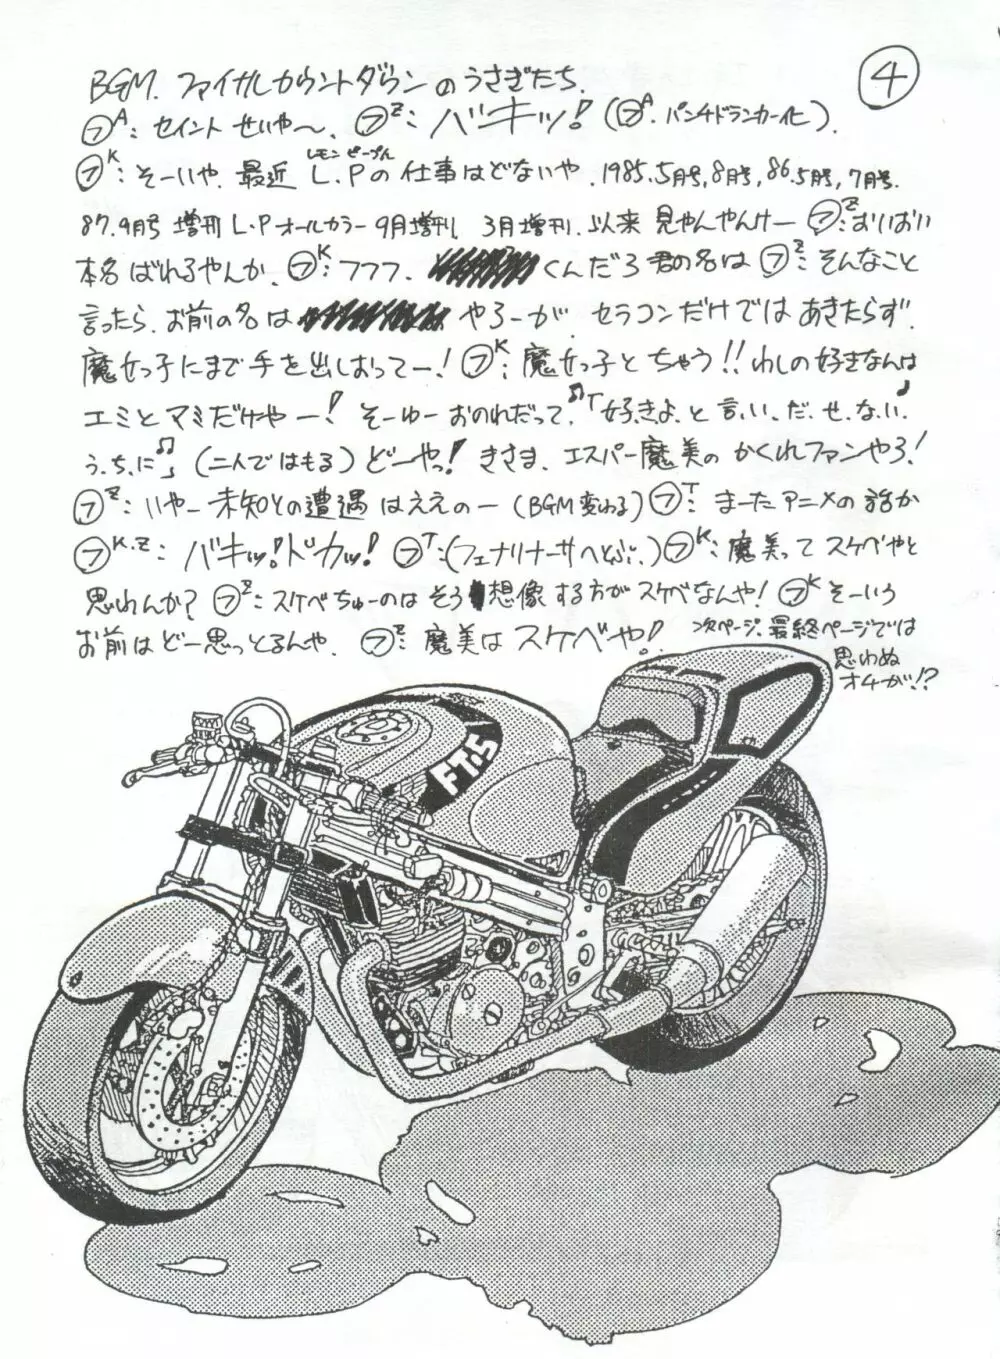 ④
BGM. ファイナルカウントダウンのうさぎたち.
フA: セイント せいや〜. フZ: バキッ! (フA. パンチドランカー化).
フK: そーいや. 最近 L.Pの 仕事はどないや. 1985.5月号,8月号,86.5月号,7月号.
レモン ピープル
87.9月号 増刊 L.Pオールカラー 9月増刊 3月増刊. 以来 見やんやんけー フZ: おいおい
本名 ばれるやんか. フK: フフフ. くんだろ 君の名は フZ: そんなこと
言ったら. お前の名は やろーが. セラコンだけでは あきたらず.
魔女っ子にまで 手を出しおってー! フK: 魔女っ子と ちゃう!! わしの好きなんは
エミとマミだけやー! そーゆー おのれだって. ♫「好.き.よ.と 言.い.だ.せ.ない」♪
う.ち.に♫ (二人ではもる) どーやっ! きさま. エスパー魔美の かくれファンやろ!
フZ: いやー未知との遭遇 はええのー (BGM変わる) フT: まーたアニメの話か
フK.Z: バキッ!ドカッ! フT:(フェナリナーサへとぶ..) フK: 魔美って スケベやと
思わんか? フZ: スケベちゅーのは そう想像する方がスケベなんや! フK そーいう
お前はどー思っとるんや. フZ: 魔美は スケベや!
次ページ. 最終ページでは
思わぬ
オチが!?
FT.5